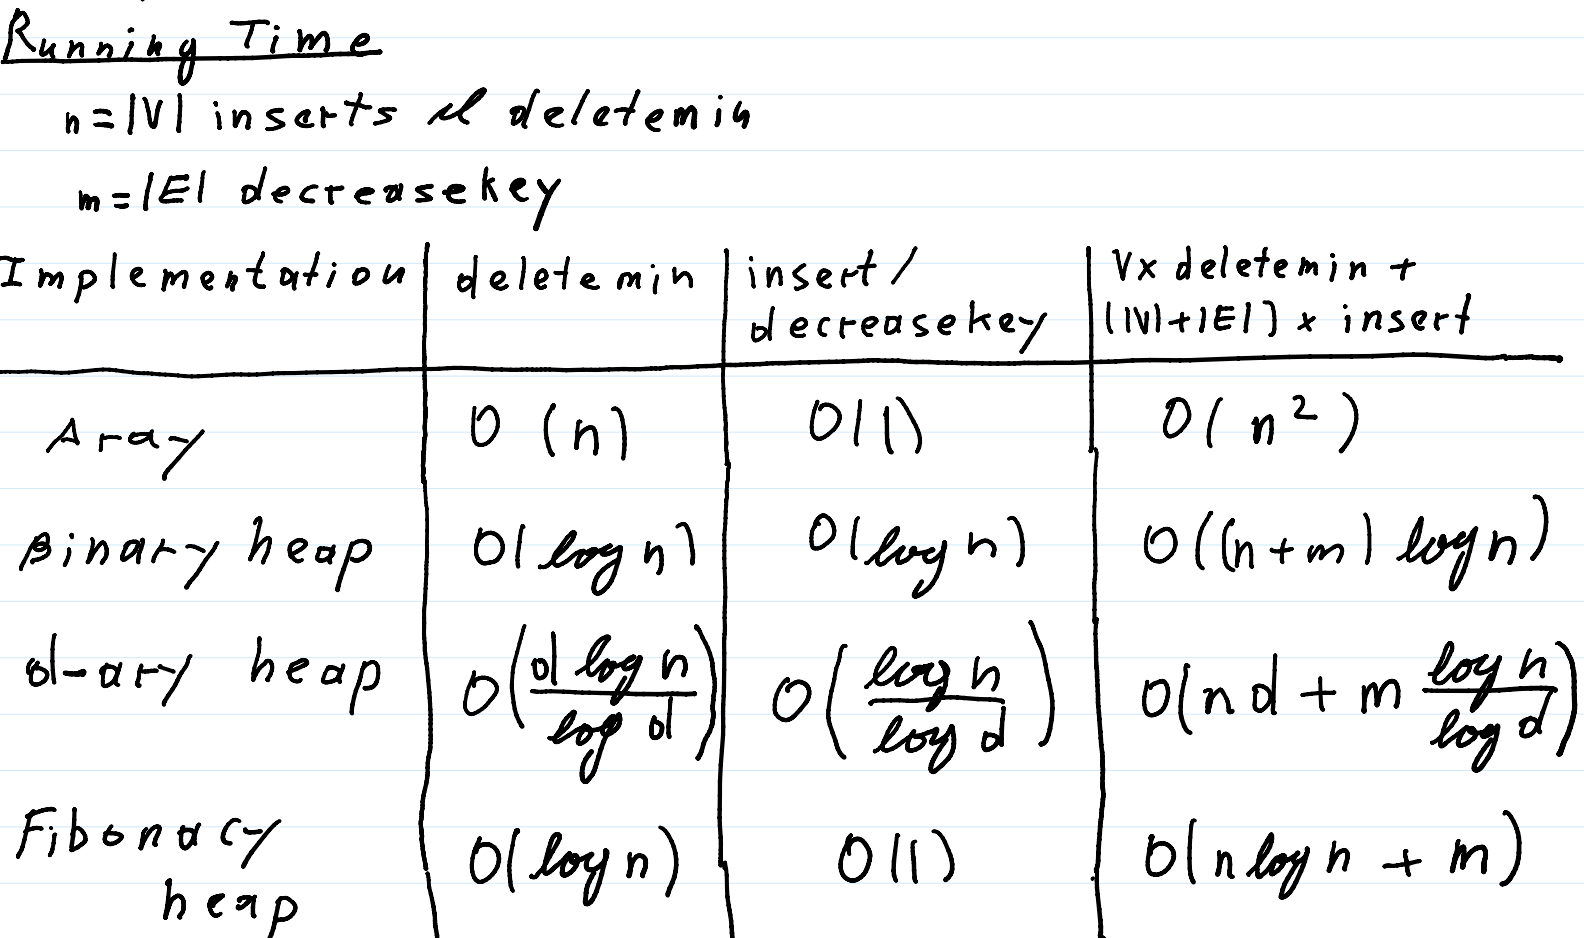 Running Time
n=|V| inserts & deletemin
m=|E| decreasekey
Implementation | deletemin | insert/ decreasekey | Vx deletemin + (|V|+|E|) x insert
Aray | O(n) | O(1) | O(n²)
Binary heap | O(log n) | O(log n) | O((n+m) log n)
d-ary heap | O(d log n / log d) | O(log n / log d) | O(nd + m log n / log d)
Fibonacy heap | O(log n) | O(1) | O(n log n + m)